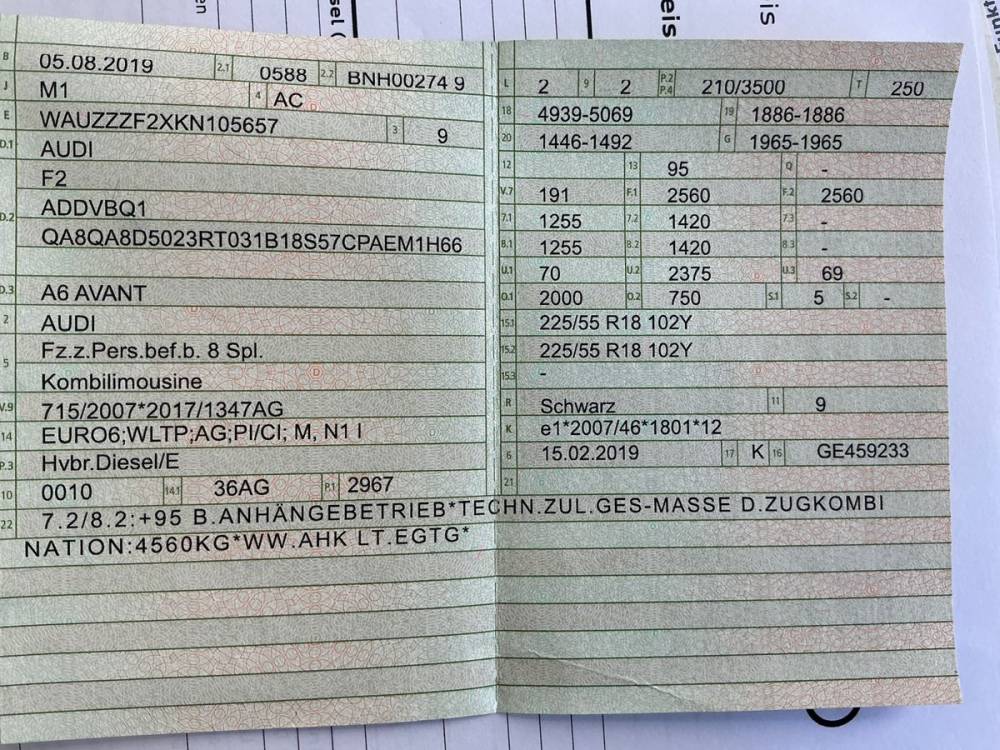 B 05.08.2019 2.1 0588 2.2 BNH00274 9
J M1 4 AC
E WAUZZZF2XKN105657 3 9
D.1 AUDI
F2
D.2 ADDVBQ1
QA8QA8D5023RT031B18S57CPAEM1H66
D.3 A6 AVANT
2 AUDI
5 Fz.z.Pers.bef.b. 8 Spl.
Kombilimousine
V.9 715/2007*2017/1347AG
14 EURO6;WLTP;AG;PI/CI; M, N1 I
P.3 Hybr.Diesel/E
10 0010 14.1 36AG P.1 2967
L 2 9 2 P.2 P.4 210/3500 T 250
18 4939-5069 19 1886-1886
20 1446-1492 G 1965-1965
12 13 95 Q -
V.7 191 F.1 2560 F.2 2560
7.1 1255 7.2 1420 7.3 -
8.1 1255 8.2 1420 8.3 -
U.1 70 U.2 2375 U.3 69
O.1 2000 O.2 750 S.1 5 S.2 -
15.1 225/55 R18 102Y
15.2 225/55 R18 102Y
15.3 -
R Schwarz 11 9
K e1*2007/46*1801*12
6 15.02.2019 17 K 16 GE459233
21
22 7.2/8.2:+95 B.ANHÄNGEBETRIEB*TECHN.ZUL.GES-MASSE D.ZUGKOMBI
NATION:4560KG*WW.AHK LT.EGTG*